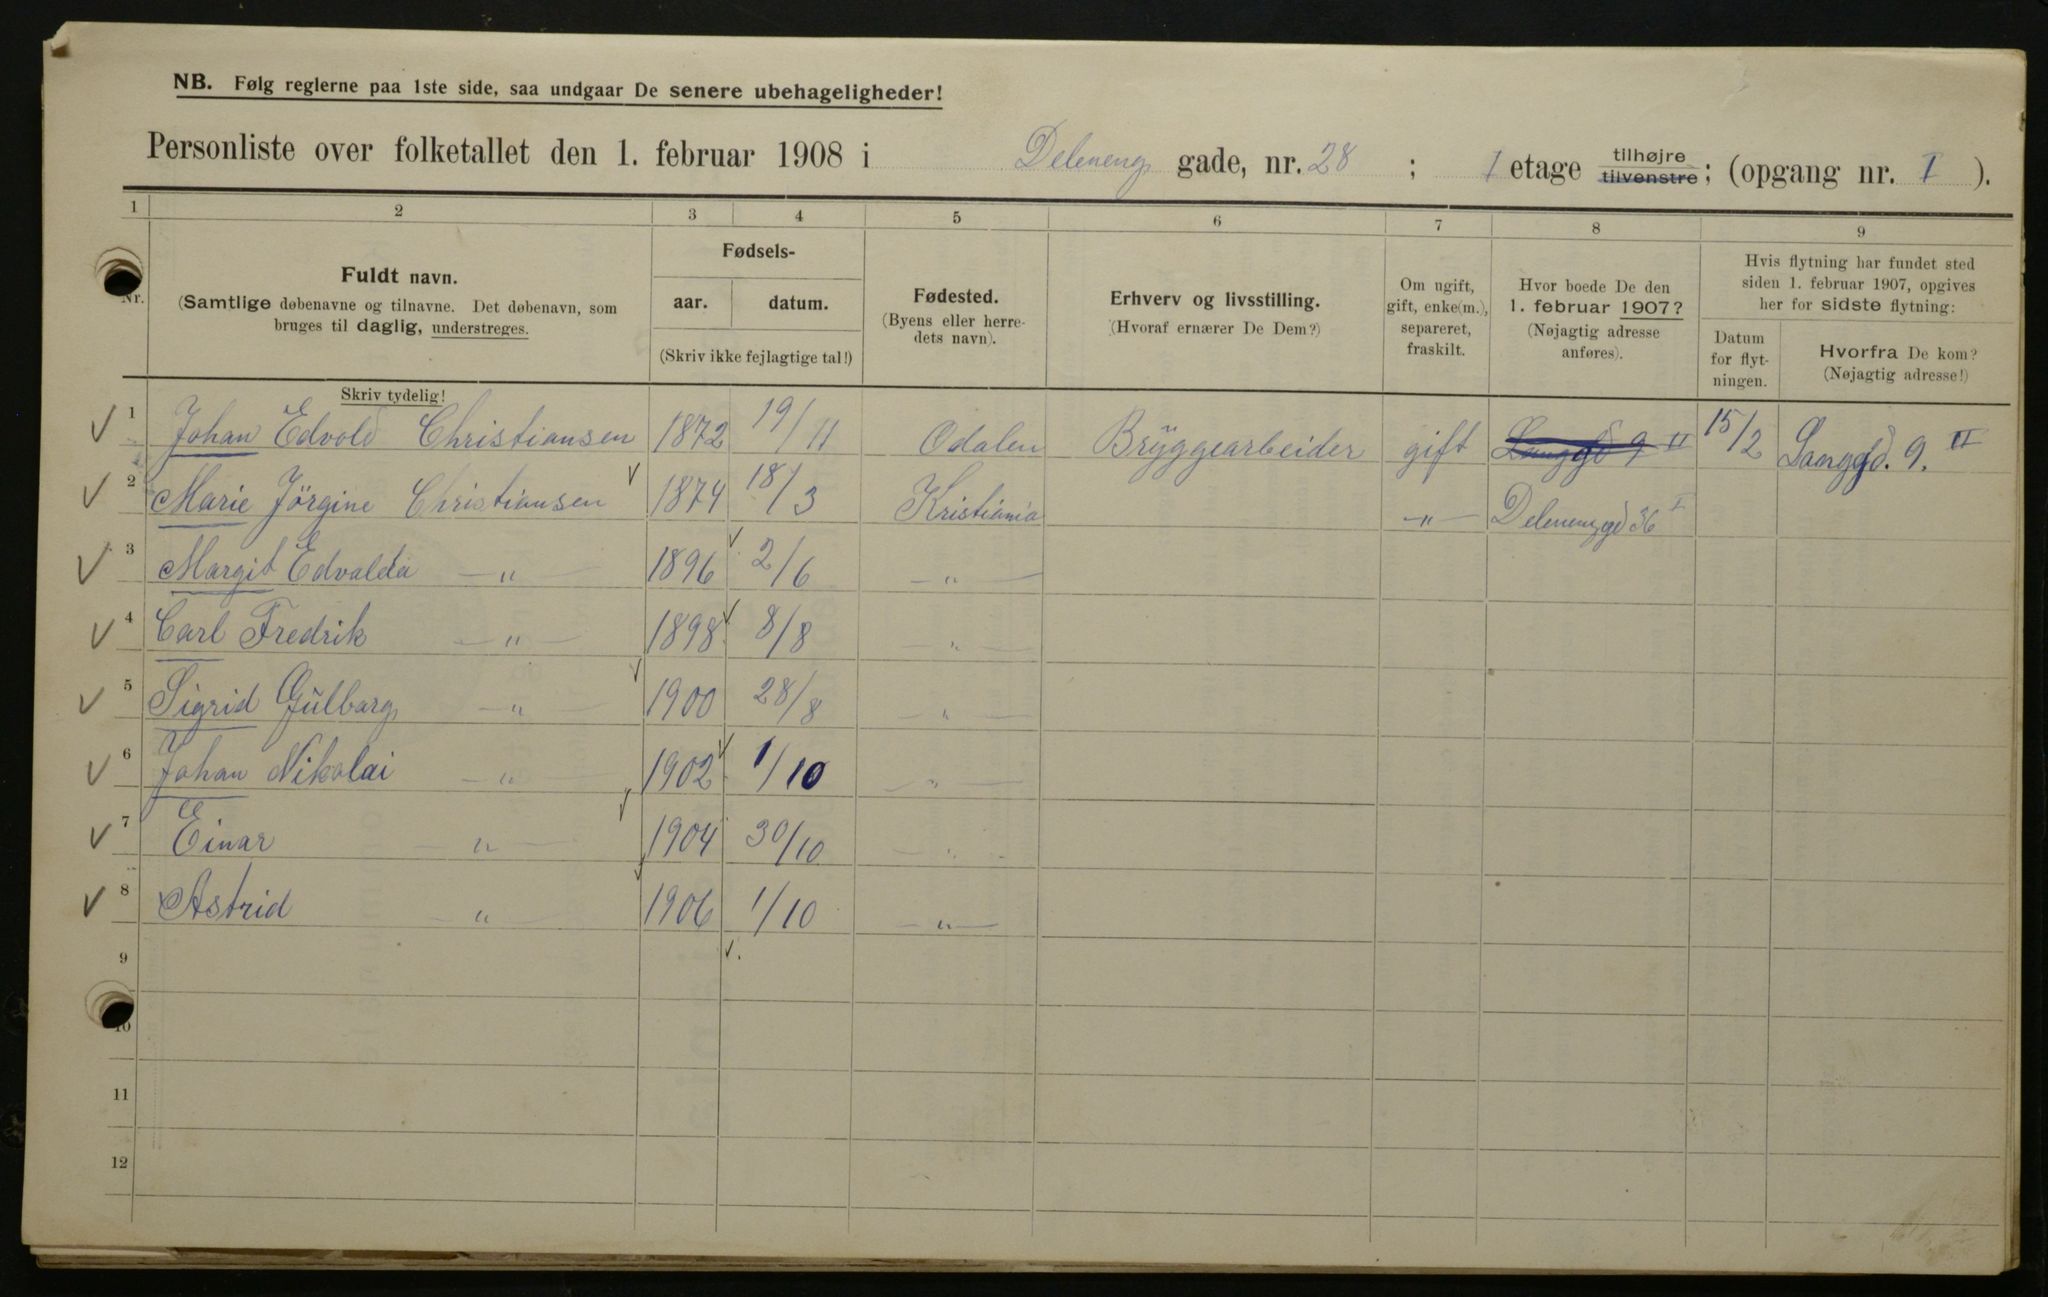 NB. Følg reglerne paa 1ste side, saa undgaar De senere ubehageligheder!
Personliste over folketallet den 1. februar 1908 i Deleneng gade, nr. 28 ; I etage tilhøjre tilvenstre; (opgang nr. I ).
1 2 3 4 5 6 7 8 9
Nr.
Fuldt navn.
(Samtlige døbenavne og tilnavne. Det døbenavn, som
bruges til daglig, understreges.
Skriv tydelig!
Fødsels-
aar. datum.
(Skriv ikke fejlagtige tal!)
Fødested.
(Byens eller herre-
dets navn).
Erhverv og livsstilling.
(Hvoraf ernærer De Dem?)
Om ugift,
gift, enke(m.),
separeret,
fraskilt.
Hvor boede De den
1. februar 1907?
(Nøjagtig adresse
anføres).
Hvis flytning har fundet sted
siden 1. februar 1907, opgives
her for sidste flytning:
Datum
for flyt-
ningen.
Hvorfra De kom?
(Nøjagtig adresse!)
1 Johan Edvold Christiansen 1872 19/11 Odalen Bryggearbeider gift Langgd 9 II 15/2 Langgd. 9. II
2 Marie Jörgine Christiansen 1874 18/3 Kristiania —"— Deleneng gd 36 I
3 Margit Edvalda —"— 1896 2/6 —"—
4 Carl Fredrik —"— 1898 8/8 —"—
5 Sigrid Gulbarg —"— 1900 28/8 —"—
6 Johan Nikolai —"— 1902 1/10 —"—
7 Einar —"— 1904 30/10 —"—
8 Astrid —"— 1906 1/10 —"—
9
10
11
12